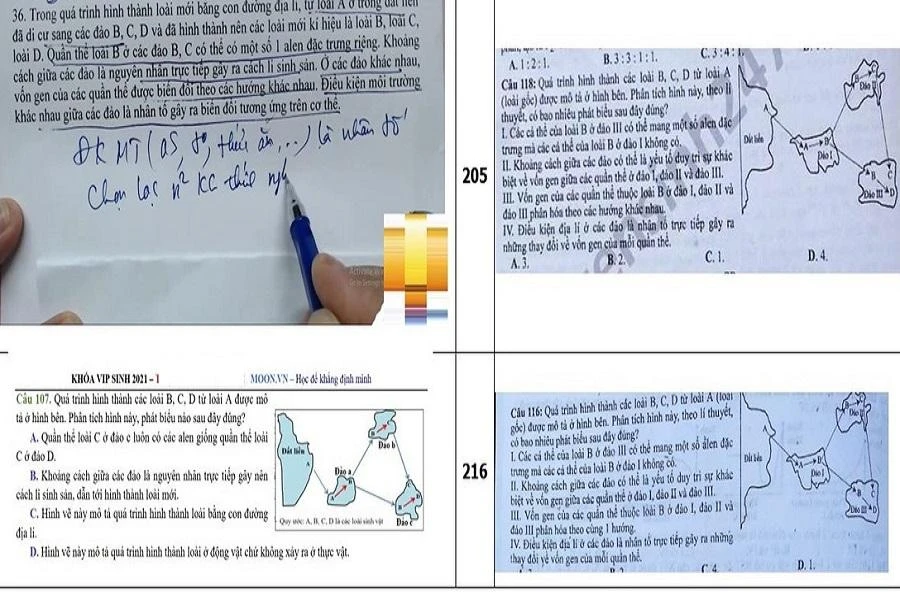 36. Trong quá trình hình thành loài mới bằng con đường địa lí, từ loài A ở trong đất liền
đã di cư sang các đảo B, C, D và đã hình thành nên các loài mới kí hiệu là loài B, loài C,
loài D. Quần thể loài B ở các đảo B, C có thể có một số 1 alen đặc trưng riêng. Khoảng
cách giữa các đảo là nguyên nhân trực tiếp gây ra cách li sinh sản. Ở các đảo khác nhau,
vốn gen của các quần thể được biến đổi theo các hướng khác nhau. Điều kiện môi trường
khác nhau giữa các đảo là nhân tố gây ra biến đổi tương ứng trên cơ thể.
ĐK MT (as, t°, thức ăn, ...) là nhân tố
Chọn lọc
205
A. 1 : 2 : 1. B. 3 : 3 : 1 : 1. C. 3 : 4 : 1.
Câu 118: Quá trình hình thành các loài B, C, D từ loài A
(loài gốc) được mô tả ở hình bên. Phân tích hình này, theo lí
thuyết, có bao nhiêu phát biểu sau đây đúng?
I. Các cá thể của loài B ở đảo III có thể mang một số alen đặc
trưng mà các cá thể của loài B ở đảo I không có.
II. Khoảng cách giữa các đảo có thể là yếu tố duy trì sự khác
biệt về vốn gen giữa các quần thể ở đảo I, đảo II và đảo III.
III. Vốn gen của các quần thể thuộc loài B ở đảo I, đảo II và
đảo III phân hóa theo các hướng khác nhau.
IV. Điều kiện địa lí ở các đảo là nhân tố trực tiếp gây ra
những thay đổi về vốn gen của mỗi quần thể.
A. 3. B. 2. C. 1. D. 4.
Đất liền
Đảo I
Đảo II
Đảo III
KHÓA VIP SINH 2021 – 1 MOON.VN – Học để khẳng định mình
Câu 107. Quá trình hình thành các loài B, C, D từ loài A được mô
tả ở hình bên. Phân tích hình này, phát biểu nào sau đây đúng?
A. Quần thể loài C ở đảo c luôn có các alen giống quần thể loài
C ở đảo D.
B. Khoảng cách giữa các đảo là nguyên nhân trực tiếp gây nên
cách li sinh sản, dẫn tới hình thành loài mới.
C. Hình vẽ này mô tả quá trình hình thành loài bằng con đường
địa lí.
D. Hình vẽ này mô tả quá trình hình thành loài ở động vật chứ không xảy ra ở thực vật.
Đất liền
A
Đảo a
Đảo b
Đảo c
Quy ước: A, B, C, D là các loài sinh vật
216
Câu 116: Quá trình hình thành các loài B, C, D từ loài A (loài
gốc) được mô tả ở hình bên. Phân tích hình này, theo lí thuyết,
có bao nhiêu phát biểu sau đây đúng?
I. Các cá thể của loài B ở đảo III có thể mang một số alen đặc
trưng mà các cá thể của loài B ở đảo I không có.
II. Khoảng cách giữa các đảo có thể là yếu tố duy trì sự khác
biệt về vốn gen giữa các quần thể ở đảo I, đảo II và đảo III.
III. Vốn gen của các quần thể thuộc loài B ở đảo I, đảo II và
đảo III phân hóa theo cùng 1 hướng.
IV. Điều kiện địa lí ở các đảo là nhân tố trực tiếp gây ra những
thay đổi về vốn gen của mỗi quần thể.
C. 4. D. 1.
Đất liền
Đảo I
Đảo II
Đảo III